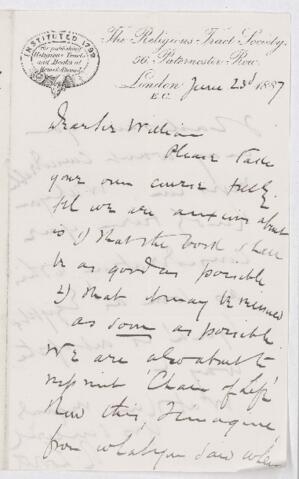 INSTITUTED 1799
for publishing
Religious Tracts
and Books at
Home & Abroad
The Religious Tract Society.
56, Paternoster Row,
London June 23rd 1887
E.C.
Dear Sir William
Please take
your own course fully.
All we are anxious about
is 1) that the book shall
be as good as possible
2) that it may be issued
as soon as possible
We are also about to
reprint 'Chain of Life'
Now this, I imagine
from what you said when